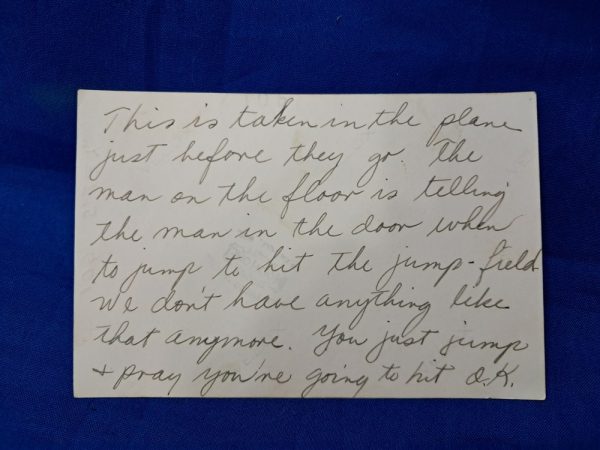 This is taken in the plane
just before they go. The
man on the floor is telling
the man in the door when
to jump to hit the jump-field
We don't have anything like
that anymore. You just jump
+ pray you're going to hit O.K.